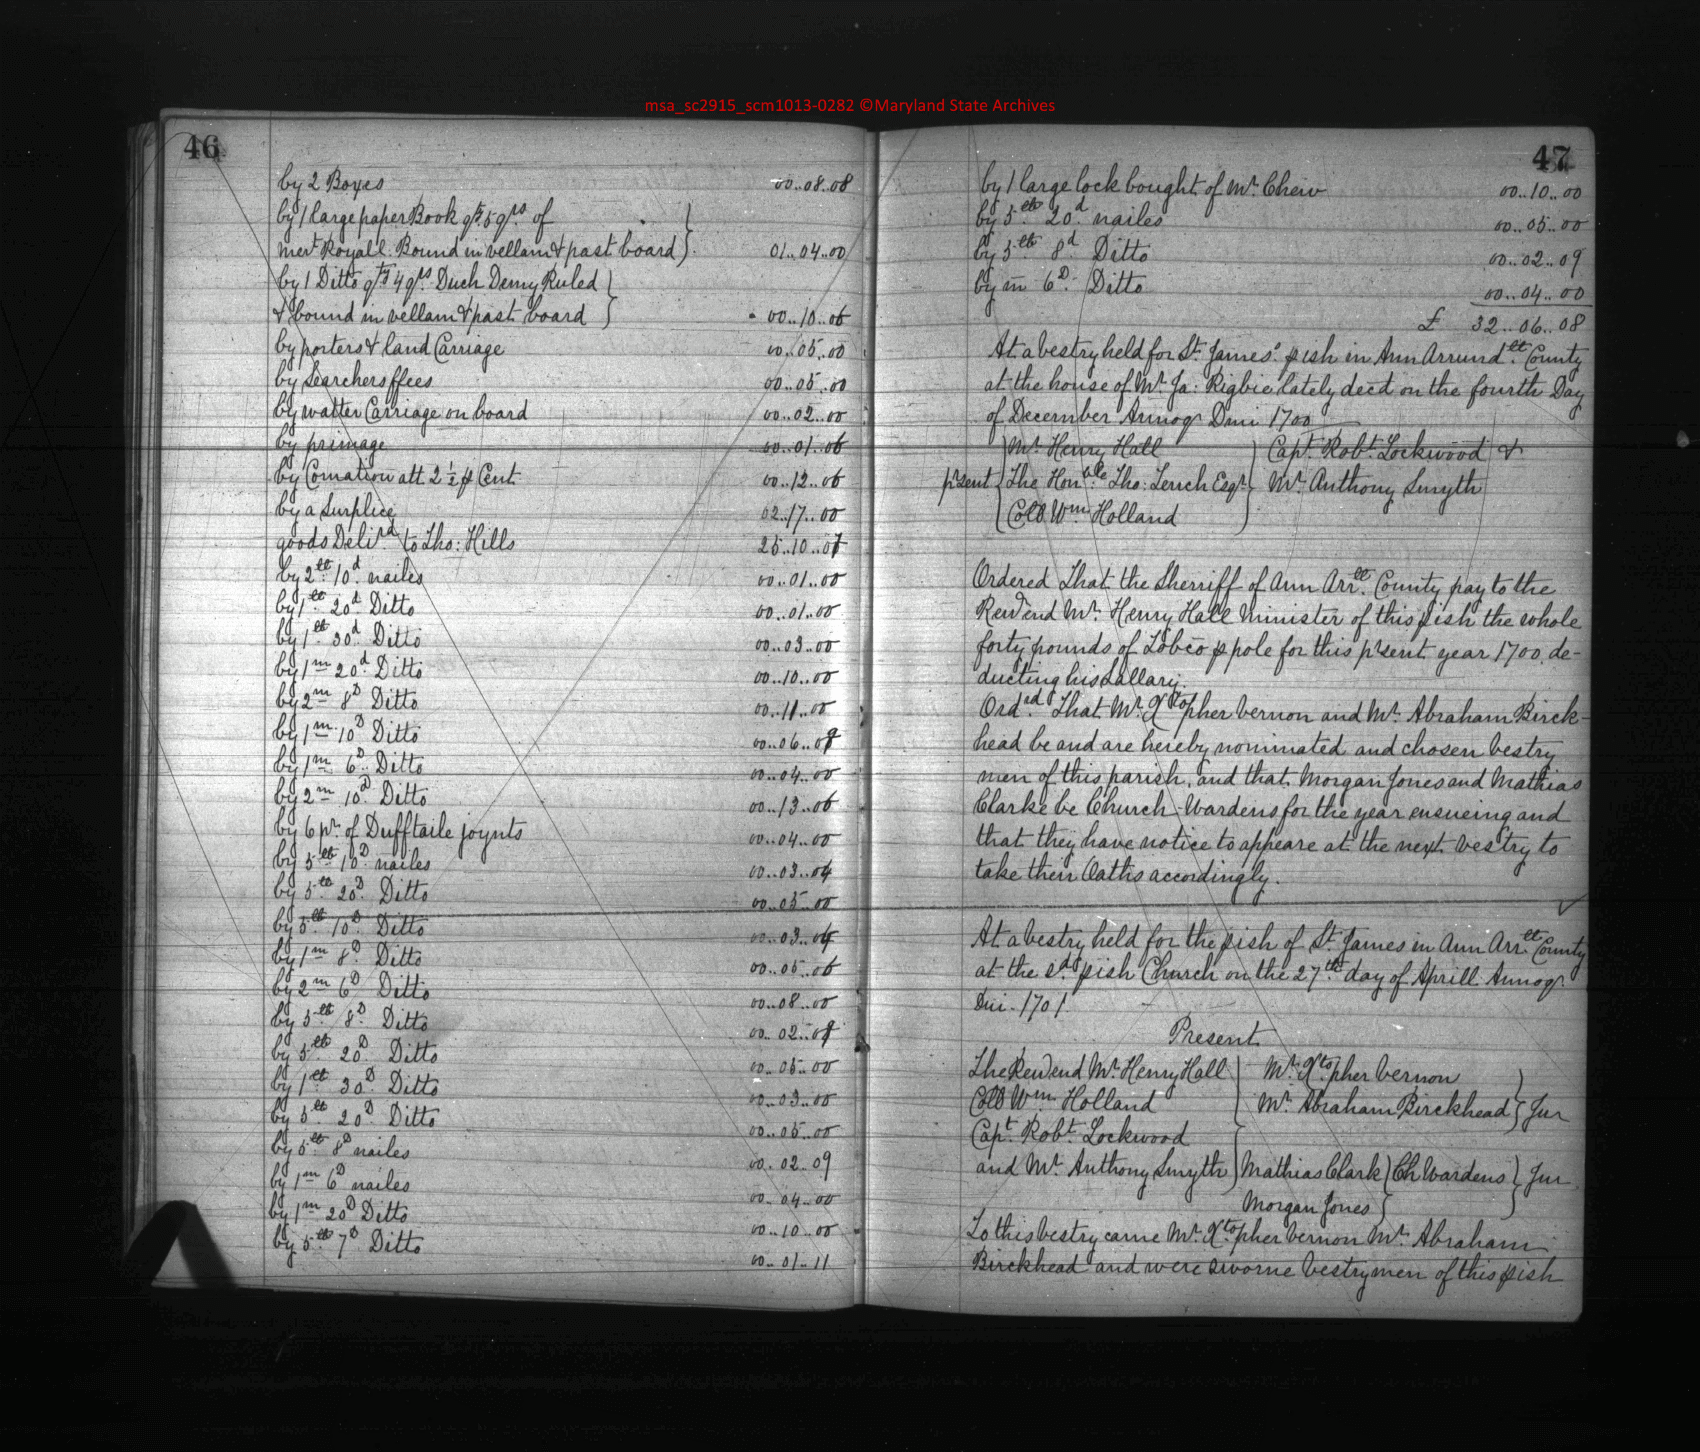 msa_sc2915_scm1013-0282 ©Maryland State Archives
46
by 2 Boxes 00..08..08
by 1 large paper Book qt 5 qrs of
Royall Bound in vellam & past board } 01..04..00
by 1 Ditto qt 4 qrs Duch Demy Ruled
& bound in vellam & past board } 00..10..06
by porters & land Carriage 00..05..00
by Searchers ffees 00..05..00
by watter Carriage on board 00..02..00
by primage 00..01..06
by Comation att 2 1/2 ꝑ Cent 00..12..06
by a Surplice 02..17..00
goods Delivrd to Tho: Hills 25..10..07
by 2lb 10d nailes 00..01..00
by 1lb 20d Ditto 00..01..00
by 1lb 30d Ditto 00..03..00
by 1m 20d Ditto 00..10..00
by 2m 8D Ditto 00..11..00
by 1m 10D Ditto 00..06..09
by 1m 6D Ditto 00..04..00
by 2m 10D Ditto 00..13..06
by 6 pr of Dufftaile joynts 00..04..00
by 5lb 10D nailes 00..03..04
by 5lb 20D Ditto 00..05..00
by 5lb 10D Ditto 00..03..04
by 1m 8D Ditto 00..05..06
by 2m 6D Ditto 00..08..00
by 5lb 8D Ditto 00..02..09
by 5lb 20D Ditto 00..05..00
by 1lb 30D Ditto 00..03..00
by 5lb 20D Ditto 00..05..00
by 5lb 8D nailes 00..02..09
by 1m 6D nailes 00..04..00
by 1m 20D Ditto 00..10..00
by 5lb 7D Ditto 00..01..11
47
by 1 large lock bought of Mr. Cheiv 00..10..00
by 5lb 20d nailes 00..05..00
by 5lb 8d Ditto 00..02..09
by m 6D Ditto 00..04..00
£ 32..06..08
At a vestry held for St. James' ꝑish in Ann Arrundlt County
at the house of Mr. Ja: Rigbie lately decd on the fourth Day
of December Annoq Dmi 1700
Mr. Henry Hall } Capt. Robt. Lockwood &
p'sent { The Honble Tho: Tench Esqr } Mr. Anthony Smyth
Coll Wm. Holland
Ordered That the Sherriff of Ann Arrlt County pay to the
Revd'end Mr. Henry Hall Minister of this ꝑish the whole
forty pounds of Tobco ꝑ pole for this p'sent year 1700, de-
ducting his Sallary.
Ordrd That Mr. Xtopher Vernon and Mr. Abraham Birck-
head be and are hereby nominated and chosen vestry
men of this parish, and that Morgan Jones and Mathias
Clarke be Church-Wardens for the year ensueing and
that they have notice to appeare at the next vestry to
take their Oaths accordingly.
At a vestry held for the ꝑish of St. James in Ann Arrlt County
at the sd ꝑish Church on the 27th day of Aprill Annoq
Dni. 1701
Present
The Revd'end Mr. Henry Hall } Mr. Xtopher Vernon
Coll Wm. Holland } Mr. Abraham Birckhead } Jur
Capt. Robt. Lockwood
and Mr. Anthony Smyth } Mathias Clark } Ch Wardens } Jur
Morgan Jones }
To this vestry came Mr. Xtopher Vernon Mr. Abraham
Birckhead and were sworne vestrymen of this ꝑish